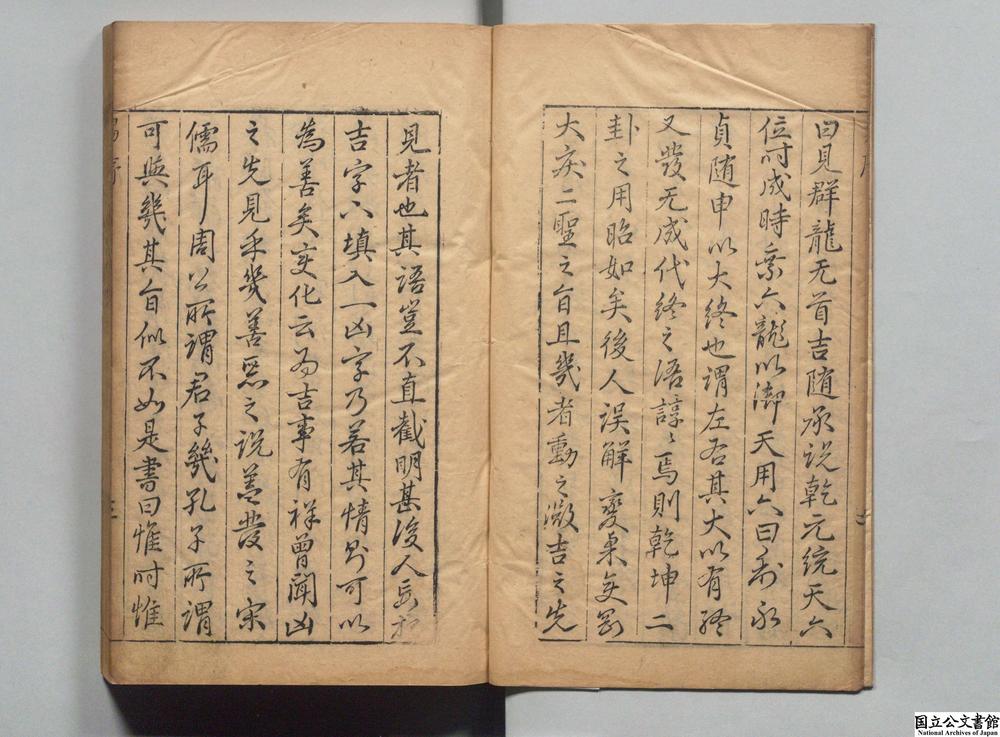 曰見群龍无首吉随承说乾元統天六
位时成時乘六龍以御天用六曰利永
貞随申以大終也谓左右其大以有終
又發无成代終之语諄〻焉則乾坤二
卦之用昭如矣後人误解變某矣
大戾二聖之旨且幾者動之微吉之先
見者也其语豈不直截明甚後人於
吉字下填入一凶字乃若其情则可以
為善矣变化云为吉事有祥曾闻凶
之先見乎幾善惡之说盖發之宋
儒耳周公所谓君子幾孔子所謂
可與幾其旨似不如是書曰惟时惟
国立公文書館
National Archives of Japan